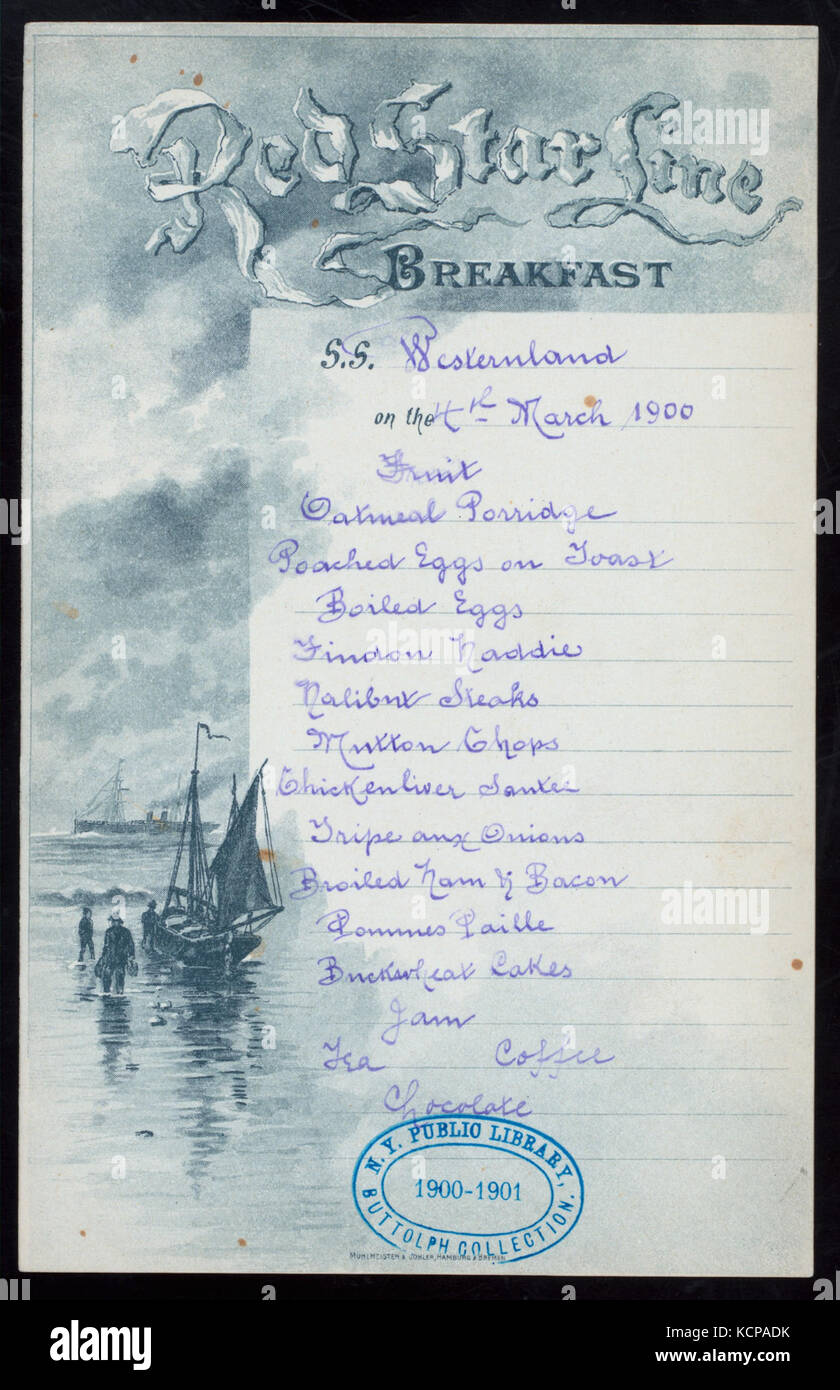 Red Star Line
BREAKFAST
S.S. Westernland
on the 4th March 1900
Fruit
Oatmeal Porridge
Poached Eggs on Toast
Boiled Eggs
Findon Haddie
Halibut Steaks
Mutton Chops
Chickenliver Sautee
Tripe aux Onions
Broiled Ham & Bacon
Pommes Paille
Buckwheat Cakes
Jam
Tea Coffee
Chocolate
N.Y. PUBLIC LIBRARY,
1900-1901
BUTTOLPH COLLECTION.
MÜHLMEISTER & JOHLER, HAMBURG & BREMEN
alamy
alamy
alamy
alamy stock photo
Image ID: KCPADK
www.alamy.com